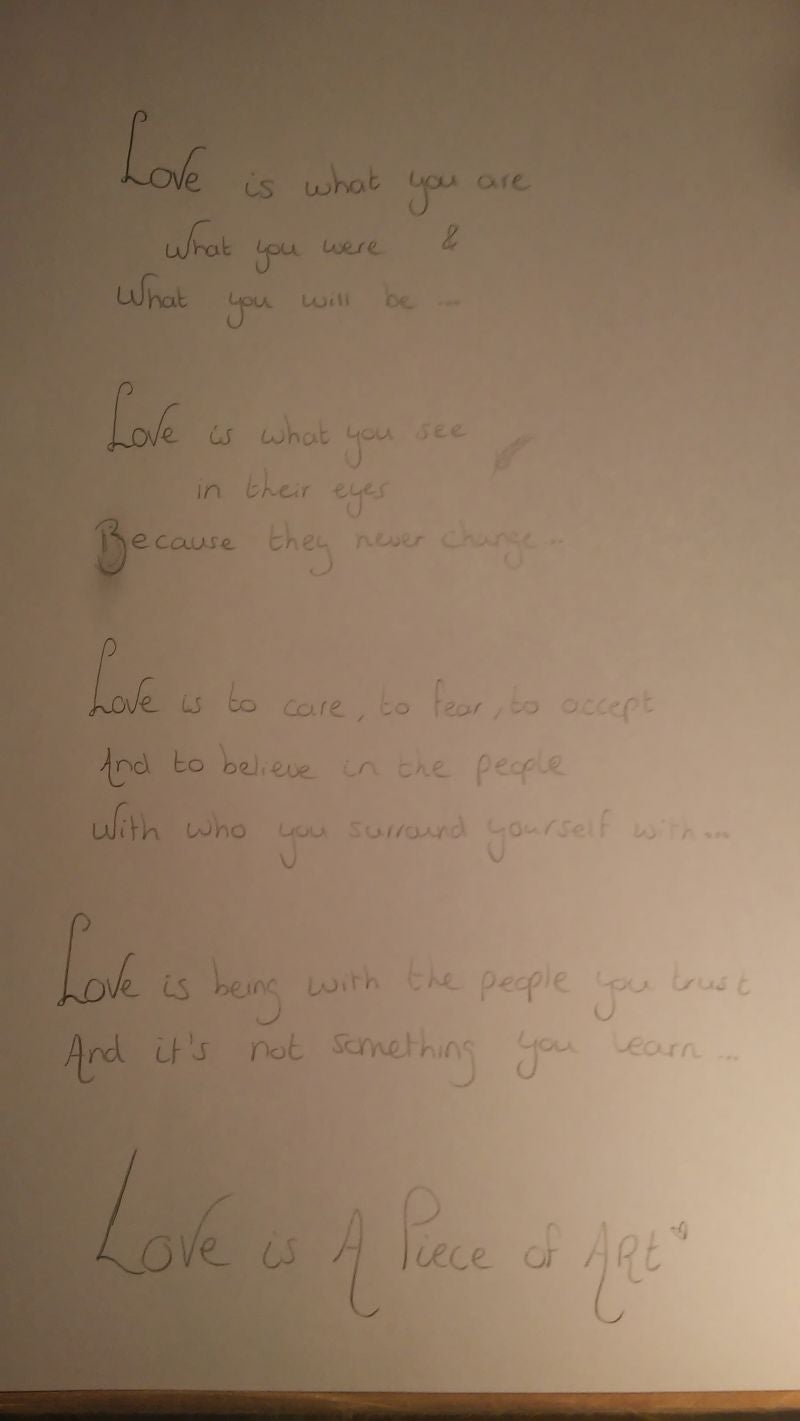 Love is what you are
What you were &
What you will be ...
Love is what you see
in their eyes
Because they never change...
Love is to care, to fear, to accept
And to believe in the people
With who you surround yourself with...
Love is being with the people you trust
And it's not something you learn ...
Love is A Piece of ARt